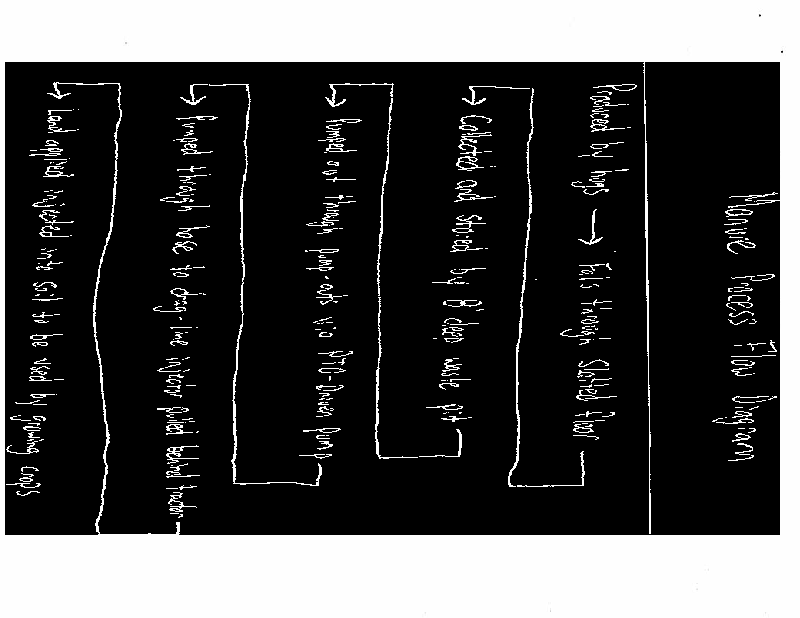 Manure Process Flow Diagram
Produced by hogs → Falls through Slotted floor
→ Collected and stored by 8' deep waste pit
→ Pumped out through pump-outs via PTO-Driven pump
→ Pumped through hose to drag-line injectors pulled behind tractor
→ Land applied injected into soil to be used by growing crops